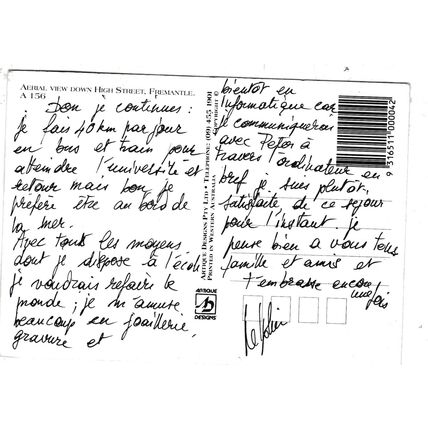 AERIAL VIEW DOWN HIGH STREET, FREMANTLE.
A 156
Bon je continues :
je fais 40 km par jour
en bus et train pour
atteindre l'université et
retour mais bon je
préfère être au bord de
la mer.
Avec tous les moyens
dont je dispose à l'école
je voudrais refaire le
monde ; je m'amuse
beaucoup en joaillerie,
gravure et
ANTIQUE DESIGNS PTY LTD • TELEPHONE: (09) 455 1901
PRINTED IN WESTERN AUSTRALIA
COPYRIGHT ©
ANTIQUE
DESIGNS
bientôt en
Informatique car
je communiquerai
avec Peter à
travers l'ordinateur en
bref je suis plutôt
satisfaite de ce séjour
pour l'instant je
pense bien à vous tous
famille et amis et
t'embrasse encore
une fois
9 316511 000042